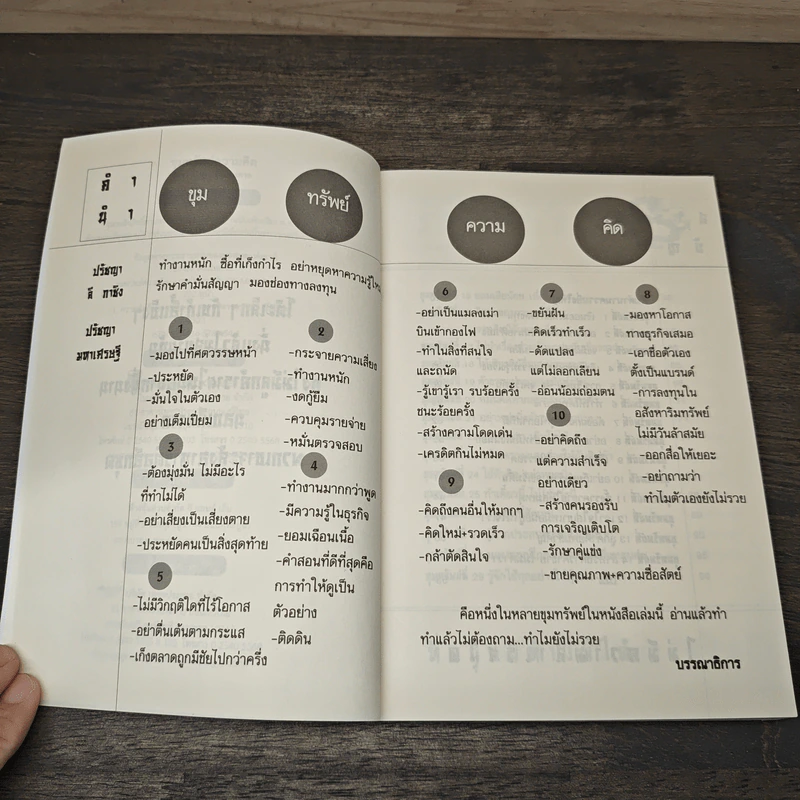 คำ
นำ
ขุม
ทรัพย์
ปรัชญา
ลี กาชิง
ทำงานหนัก ซื้อที่เก็งกำไร อย่าหยุดหาความรู้ใหม่
รักษาคำมั่นสัญญา มองช่องทางลงทุน
ปรัชญา
มหาเศรษฐี
1
-มองไปที่ศตวรรษหน้า
-ประหยัด
-มั่นใจในตัวเอง
อย่างเต็มเปี่ยม
2
-กระจายความเสี่ยง
-ทำงานหนัก
-งดกู้ยืม
-ควบคุมรายจ่าย
-หมั่นตรวจสอบ
3
-ต้องมุ่งมั่น ไม่มีอะไร
ที่ทำไม่ได้
-อย่าเสี่ยงเป็นเสี่ยงตาย
-ประหยัดคนเป็นสิ่งสุดท้าย
4
-ทำงานมากกว่าพูด
-มีความรู้ในธุรกิจ
-ยอมเฉือนเนื้อ
-คำสอนที่ดีที่สุดคือ
การทำให้ดูเป็น
ตัวอย่าง
-ติดดิน
5
-ไม่มีวิกฤติใดที่ไร้โอกาส
-อย่าตื่นเต้นตามกระแส
-เก็งตลาดถูกมีชัยไปกว่าครึ่ง
ความ
คิด
6
-อย่าเป็นแมลงเม่า
บินเข้ากองไฟ
-ทำในสิ่งที่สนใจ
และถนัด
-รู้เขารู้เรา รบร้อยครั้ง
ชนะร้อยครั้ง
-สร้างความโดดเด่น
-เครดิตกินไม่หมด
7
-ขยันฝัน
-คิดเร็วทำเร็ว
-ดัดแปลง
แต่ไม่ลอกเลียน
-อ่อนน้อมถ่อมตน
8
-มองหาโอกาส
ทางธุรกิจเสมอ
-เอาชื่อตัวเอง
ตั้งเป็นแบรนด์
-การลงทุนใน
อสังหาริมทรัพย์
ไม่มีวันล้าสมัย
-ออกสื่อให้เยอะ
-อย่าถามว่า
ทำไมตัวเองยังไม่รวย
9
-คิดถึงคนอื่นให้มากๆ
-คิดใหม่+รวดเร็ว
-กล้าตัดสินใจ
10
-อย่าคิดถึง
แต่ความสำเร็จ
อย่างเดียว
-สร้างคนรองรับ
การเจริญเติบโต
-รักษาคู่แข่ง
-ขายคุณภาพ+ความซื่อสัตย์
คือหนึ่งในหลายขุมทรัพย์ในหนังสือเล่มนี้ อ่านแล้วทำ
ทำแล้วไม่ต้องถาม...ทำไมยังไม่รวย
บรรณาธิการ